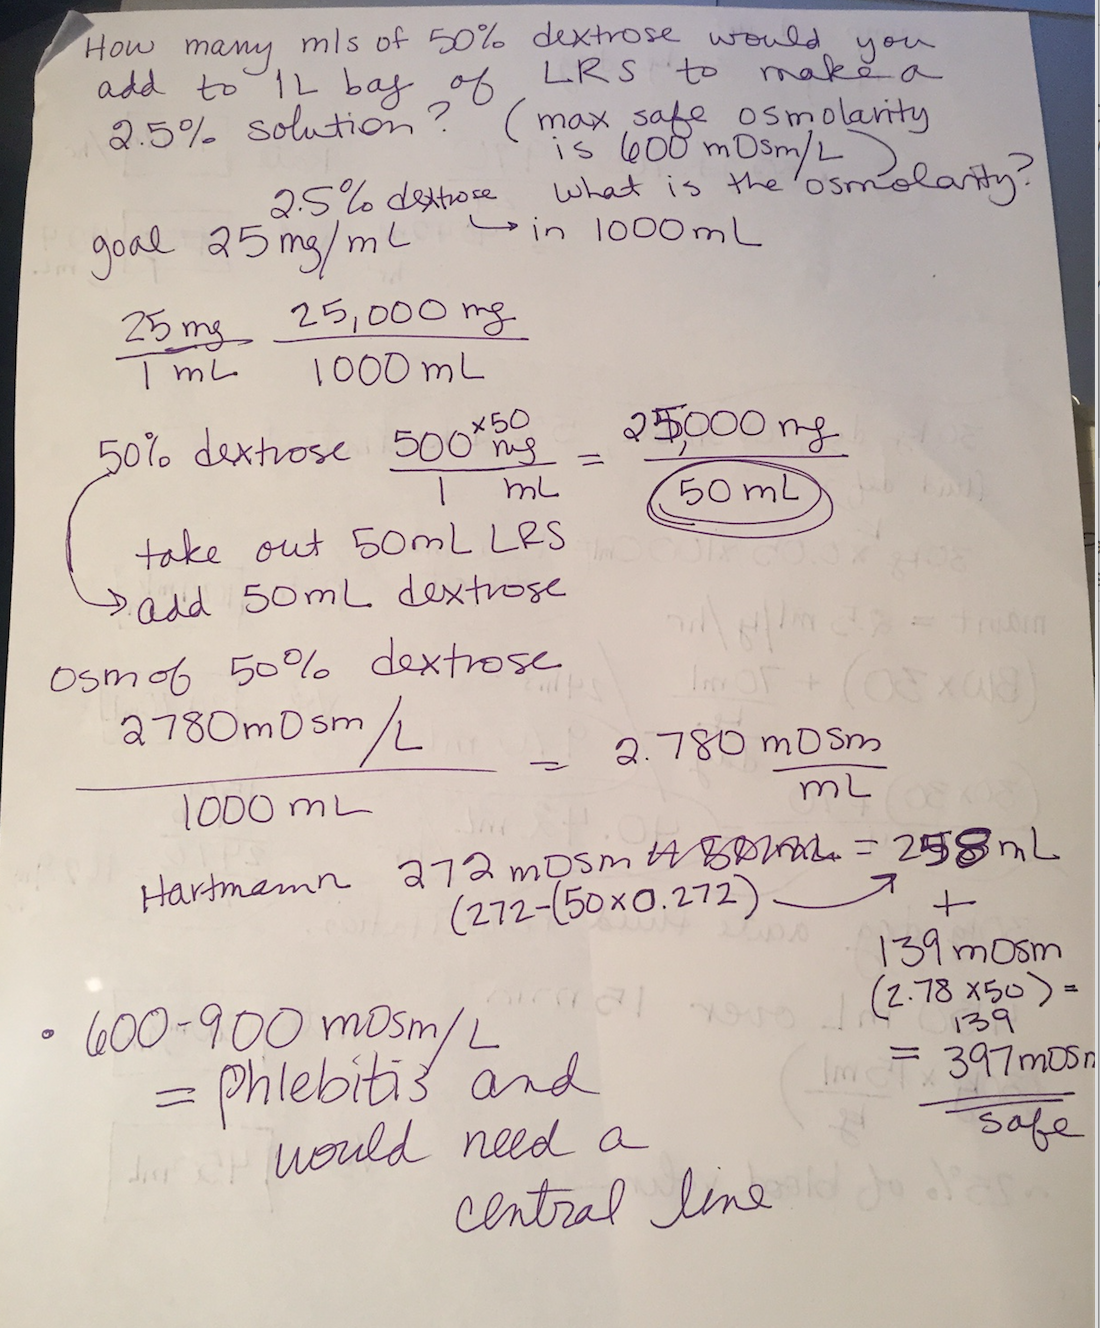 How many mls of 50% dextrose would you
add to 1L bag of LRS to make a
2.5% solution? (max safe osmolarity
is 600 mOsm/L)
2.5% dextrose What is the osmolarity?
goal 25 mg/mL ↳ in 1000 mL
25 mg 25,000 mg
1 mL 1000 mL
50% dextrose 500 mg x50 = 25,000 mg
1 mL 50 mL
take out 50mL LRS
→ add 50mL dextrose
Osm of 50% dextrose
2780 mOsm/L = 2.780 mOsm
1000 mL mL
Hartmann 272 mOsm = 258 mL
(272-(50x0.272)
+
139 mOsm
(2.78 x50) =
139
= 397 mOsm
safe
• 600-900 mOsm/L
= Phlebitis and
would need a
central line